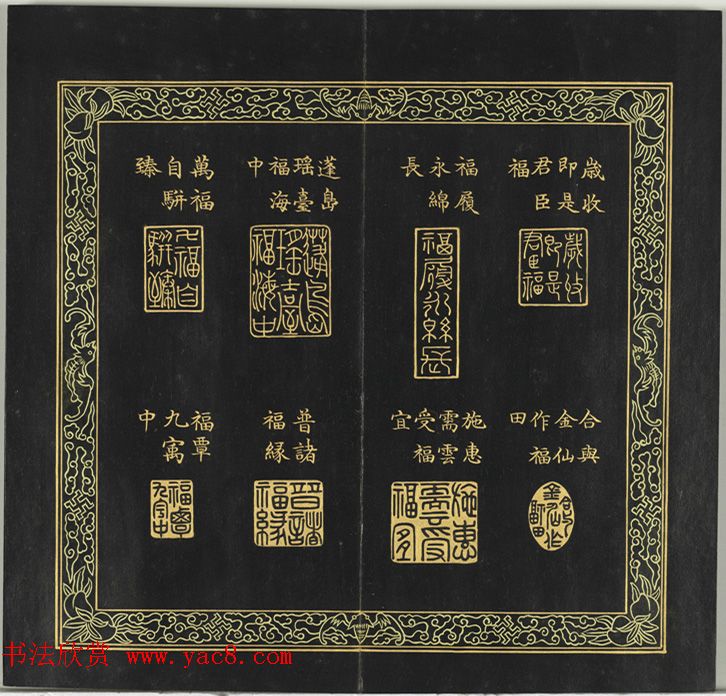 歳收即是君臣福
福履永綿長
蓬島瑤臺福海中
萬福自駢臻
合與金仙作福田
施惠需雲受福宜
普諸福緣
福覃九寓中
书法欣赏 www.yac8.com